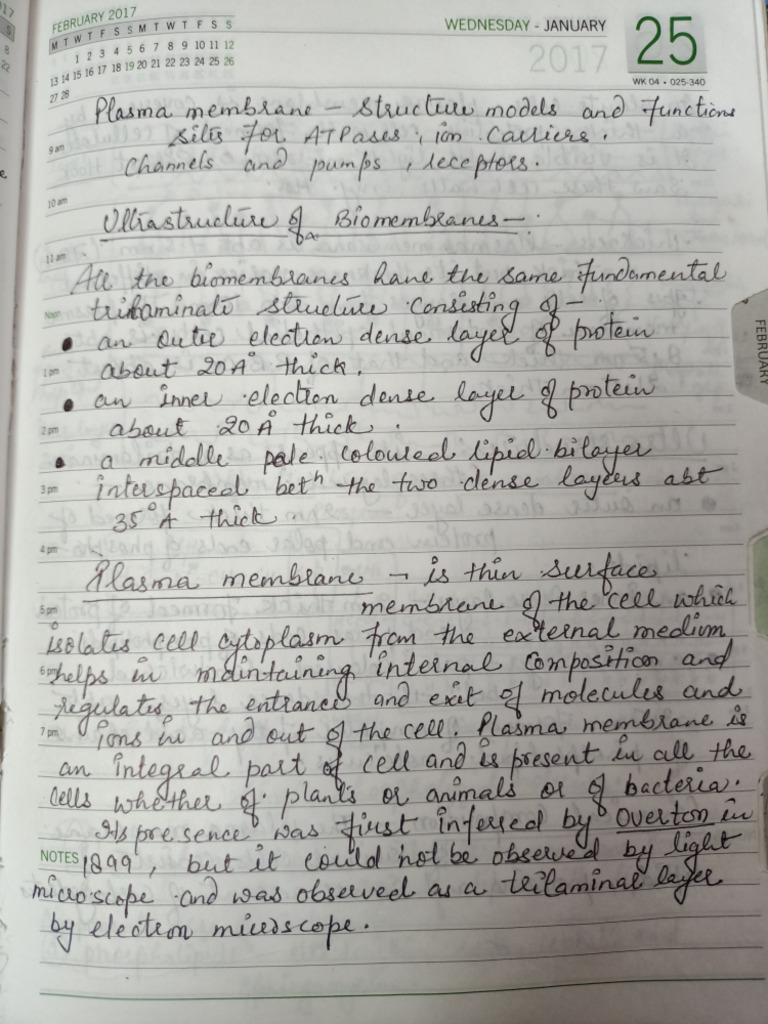 FEBRUARY 2017
M T W T F S S M T W T F S S
1 2 3 4 5 6 7 8 9 10 11 12
13 14 15 16 17 18 19 20 21 22 23 24 25 26
27 28
WEDNESDAY - JANUARY
2017
25
WK 04 • 025-340
Plasma membrane – Structure models and functions
9 am sites for ATPases, ion carriers.
Channels and pumps, receptors.
10 am
Ultrastructure of Biomembranes – :
11 am
All the biomembranes have the same fundamental
Noon trilaminate structure consisting of –
• an outer electron dense layer of protein
1 pm about 20A° thick.
• an inner electron dense layer of protein
2 pm about 20 Å thick.
• a middle pale coloured lipid bilayer
3 pm interspaced betⁿ the two dense layers abt
35°A thick.
4 pm
Plasma membrane – is thin surface
5 pm membrane of the cell which
isolates cell cytoplasm from the external medium
6 pm helps in maintaining internal composition and
regulates the entrance and exit of molecules and
7 pm ions in and out of the cell. Plasma membrane is
an integral part of cell and is present in all the
cells whether of plants or animals or of bacteria.
Its presence was first inferred by Overton in
NOTES 1899, but it could not be observed by light
microscope and was observed as a trilaminal layer
by electron microscope.
FEBRUARY